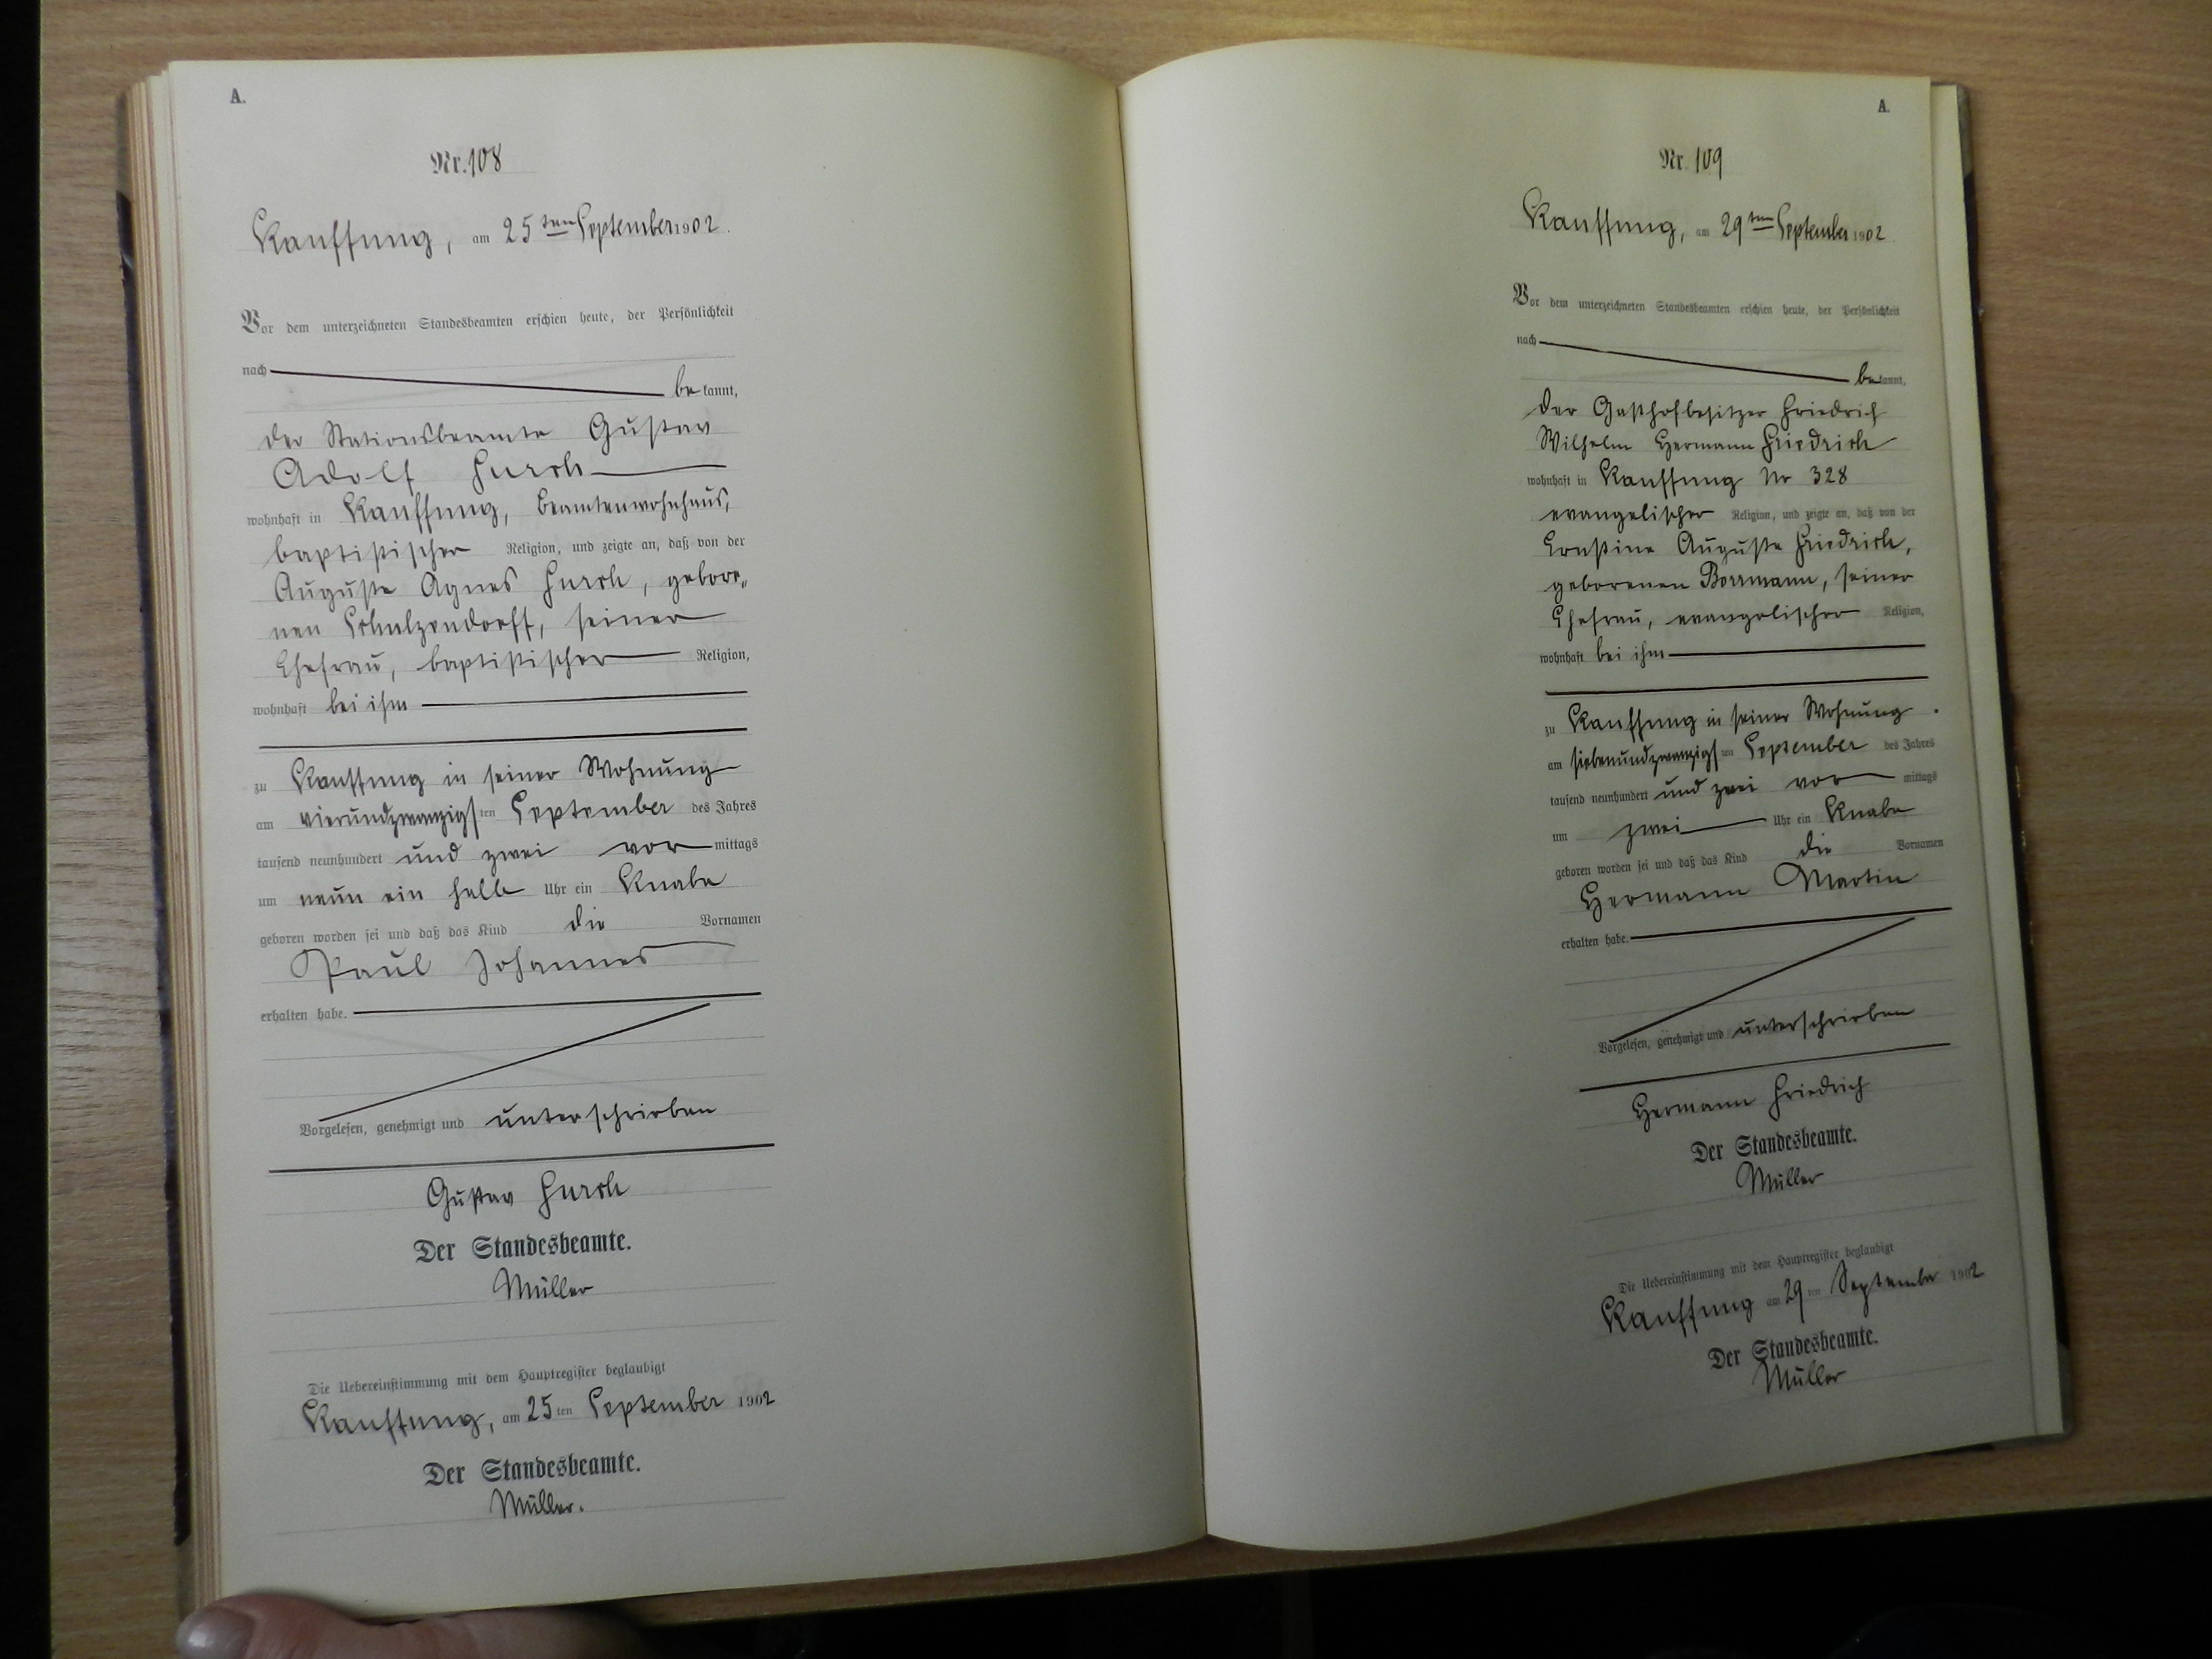 A.
Nr. 108
Kauffung, am 25ten September 1902.
Vor dem unterzeichneten Standesbeamten erschien heute, der Persönlichkeit
nach
bekannt,
der Stationsbeamte Gustav
Adolf
wohnhaft in Kauffung, Beamtenwohnhaus,
baptistischer Religion, und zeigte an, daß von der
Auguste Agnes gebore„
nen Schulzendorff, seiner
Ehefrau, baptistischer Religion,
wohnhaft bei ihm
zu Kauffung in seiner Wohnung
am vierundzwanzigsten September des Jahres
tausend neunhundert und zwei vormittags
um neun ein halb Uhr ein Knabe
geboren worden sei und daß das Kind die Vornamen
Paul Johannes
erhalten habe.
Vorgelesen, genehmigt und unterschrieben
Gustav
Der Standesbeamte.
Müller
Die Uebereinstimmung mit dem Hauptregister beglaubigt
Kauffung, am 25ten September 1902
Der Standesbeamte.
Müller.
A.
Nr. 109
Kauffung, am 29ten September 1902
Vor dem unterzeichneten Standesbeamten erschien heute, der Persönlichkeit
nach
bekannt,
der Gasthofbesitzer Friedrich
Wilhelm Hermann Friedrich
wohnhaft in Kauffung Nr 328
evangelischer Religion, und zeigte an, daß von der
Ernstine Auguste Friedrich,
geborenen Borrmann, seiner
Ehefrau, evangelischer Religion,
wohnhaft bei ihm
zu Kauffung in seiner Wohnung
am siebenundzwanzigsten September des Jahres
tausend neunhundert und zwei vormittags
um zwei Uhr ein Knabe
geboren worden sei und daß das Kind die Vornamen
Hermann Martin
erhalten habe.
Vorgelesen, genehmigt und unterschrieben
Hermann Friedrich
Der Standesbeamte.
Müller
Die Uebereinstimmung mit dem Hauptregister beglaubigt
Kauffung am 29ten September 1902
Der Standesbeamte.
Müller